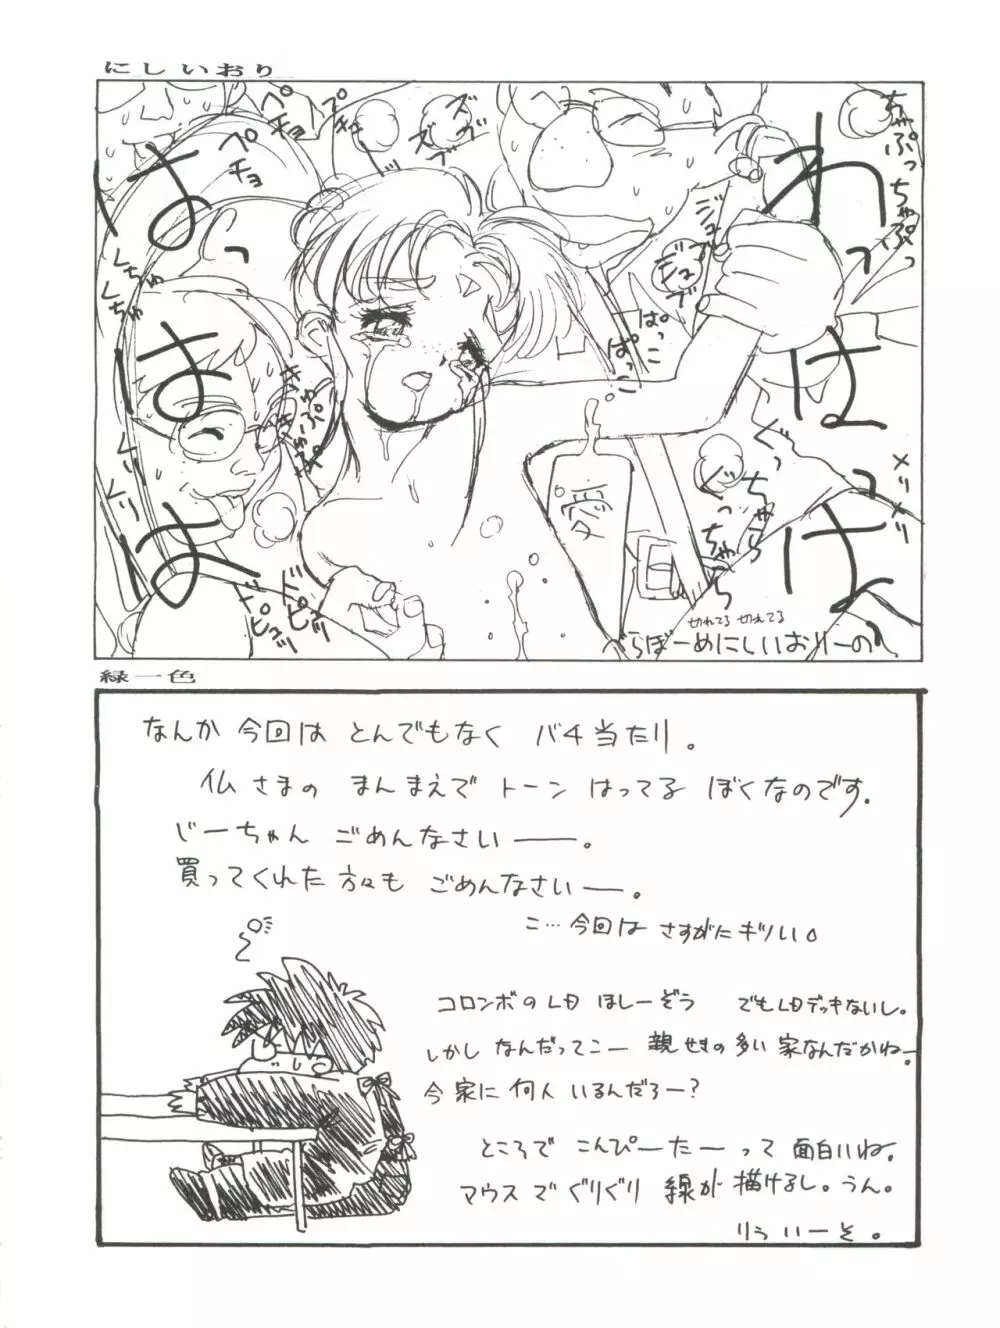 にしいおり
ペチョ
ペチョ
プチュッ
ズブ
ズブ
ジュブ
ジュブ
ちゃぷっちゃぷっ
わっはっはっ
はっはは
くちゅ
くちゅ
ぱっこ
ぱっこ
ぐっちゃら
ぐっちゃら
メリメリ
くりくり
ドピュッ
ドピュッ
愛
切れてる 切れてる
べらぼーめにしいおりーの
緑一色
なんか 今回は とんでもなく バチ当たり。
仏さまの まんまえで トーン はってる ぼくなのです。
じーちゃん ごめんなさい――。
買ってくれた方々も ごめんなさい―。
こ…今回は さすがに キツしい。
コロンボのLD ほしーぞう でもLDデッキないし。
しかし なんだってこー 親せきの多い 家なんだかねー
今家に 何人 いるんだろー?
ところで こんぴーたーって 面白いね。
マウスで ぐりぐり 線が 描けるし。うん。
りういーそ。